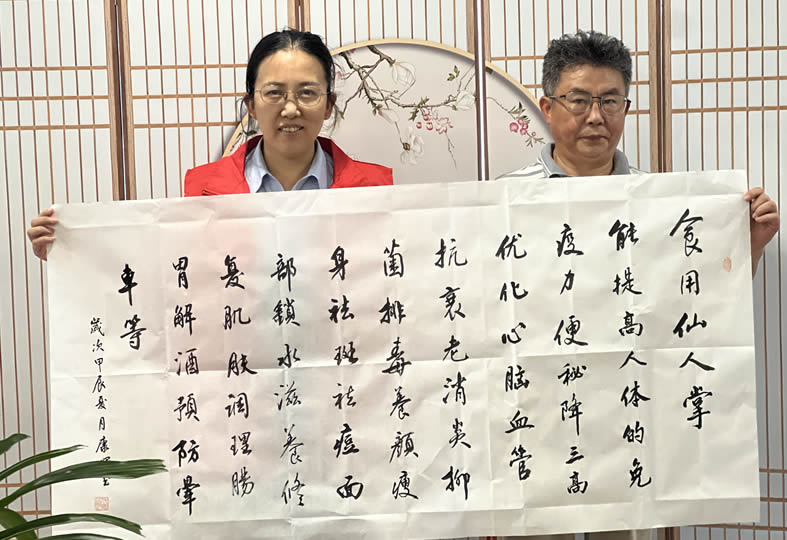 食用仙人掌
能提高人体的免
疫力便秘降三高
优化心脑血管
抗衰老消炎抑
菌排毒養颜瘦
身祛斑祛痘面
部鎖水滋養修
复肌肤调理腸
胃解酒预防暈
車等
歲次甲辰夏月康